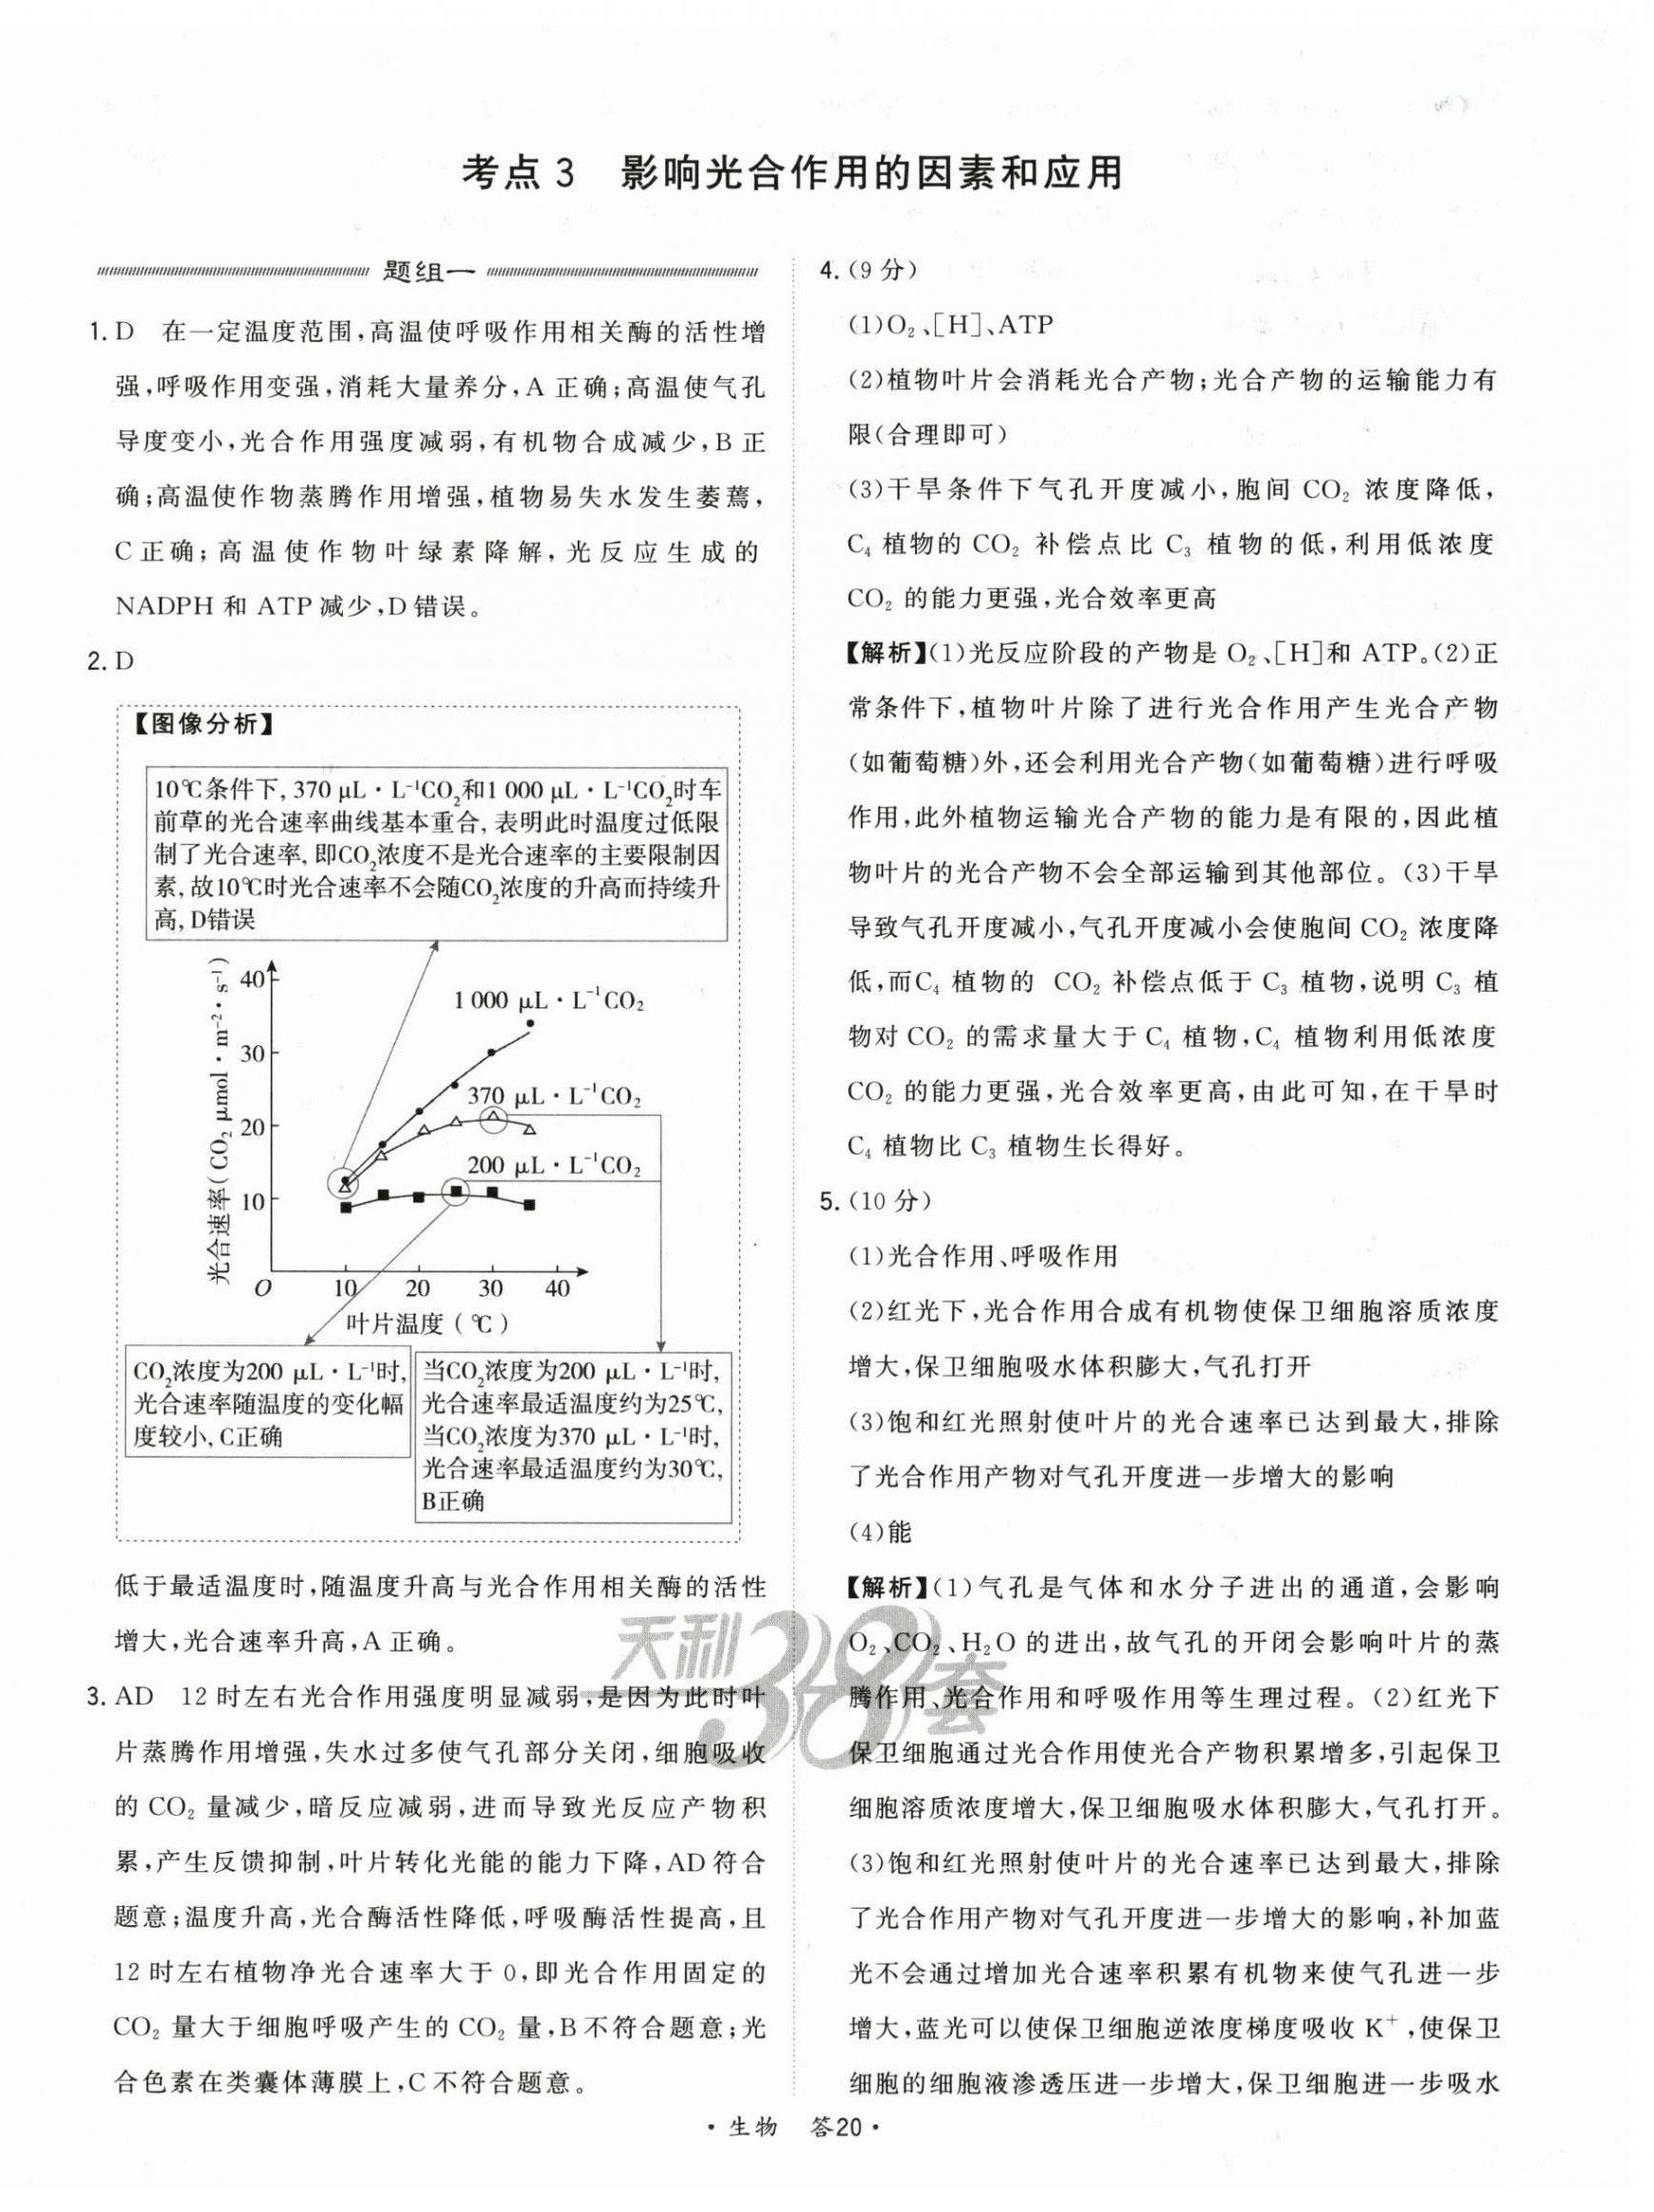 考点3 影响光合作用的因素和应用
题组一
1. D 在一定温度范围,高温使呼吸作用相关酶的活性增
强,呼吸作用变强,消耗大量养分,A 正确;高温使气孔
导度变小,光合作用强度减弱,有机物合成减少,B 正
确;高温使作物蒸腾作用增强,植物易失水发生萎蔫,
C 正确;高温使作物叶绿素降解,光反应生成的
NADPH 和 ATP 减少,D 错误。
2. D
【图像分析】
10℃条件下, 370 μL·L⁻¹CO₂和1 000 μL·L⁻¹CO₂时车
前草的光合速率曲线基本重合, 表明此时温度过低限
制了光合速率, 即CO₂浓度不是光合速率的主要限制因
素, 故10℃时光合速率不会随CO₂浓度的升高而持续升
高, D错误
光合速率(CO₂ μmol·m⁻²·s⁻¹)
40
30
20
10
O
1 000 μL·L⁻¹CO₂
370 μL·L⁻¹CO₂
200 μL·L⁻¹CO₂
10 20 30 40
叶片温度(℃)
CO₂浓度为200 μL·L⁻¹时,
光合速率随温度的变化幅
度较小, C正确
当CO₂浓度为200 μL·L⁻¹时,
光合速率最适温度约为25℃,
当CO₂浓度为370 μL·L⁻¹时,
光合速率最适温度约为30℃,
B正确
低于最适温度时,随温度升高与光合作用相关酶的活性
增大,光合速率升高,A 正确。
3. AD 12 时左右光合作用强度明显减弱,是因为此时叶
片蒸腾作用增强,失水过多使气孔部分关闭,细胞吸收
的 CO₂ 量减少,暗反应减弱,进而导致光反应产物积
累,产生反馈抑制,叶片转化光能的能力下降,AD 符合
题意;温度升高,光合酶活性降低,呼吸酶活性提高,且
12 时左右植物净光合速率大于 0,即光合作用固定的
CO₂ 量大于细胞呼吸产生的 CO₂ 量,B 不符合题意;光
合色素在类囊体薄膜上,C 不符合题意。
4. (9 分)
(1)O₂、[H]、ATP
(2)植物叶片会消耗光合产物;光合产物的运输能力有
限(合理即可)
(3)干旱条件下气孔开度减小,胞间 CO₂ 浓度降低,
C₄ 植物的 CO₂ 补偿点比 C₃ 植物的低,利用低浓度
CO₂ 的能力更强,光合效率更高
【解析】(1)光反应阶段的产物是 O₂、[H]和 ATP。(2)正
常条件下,植物叶片除了进行光合作用产生光合产物
(如葡萄糖)外,还会利用光合产物(如葡萄糖)进行呼吸
作用,此外植物运输光合产物的能力是有限的,因此植
物叶片的光合产物不会全部运输到其他部位。(3)干旱
导致气孔开度减小,气孔开度减小会使胞间 CO₂ 浓度降
低,而C₄ 植物的 CO₂ 补偿点低于 C₃ 植物,说明 C₃ 植
物对 CO₂ 的需求量大于 C₄ 植物,C₄ 植物利用低浓度
CO₂ 的能力更强,光合效率更高,由此可知,在干旱时
C₄ 植物比 C₃ 植物生长得好。
5. (10 分)
(1)光合作用、呼吸作用
(2)红光下,光合作用合成有机物使保卫细胞溶质浓度
增大,保卫细胞吸水体积膨大,气孔打开
(3)饱和红光照射使叶片的光合速率已达到最大,排除
了光合作用产物对气孔开度进一步增大的影响
(4)能
【解析】(1)气孔是气体和水分子进出的通道,会影响
O₂、CO₂、H₂O 的进出,故气孔的开闭会影响叶片的蒸
腾作用、光合作用和呼吸作用等生理过程。(2)红光下
保卫细胞通过光合作用使光合产物积累增多,引起保卫
细胞溶质浓度增大,保卫细胞吸水体积膨大,气孔打开。
(3)饱和红光照射使叶片的光合速率已达到最大,排除
了光合作用产物对气孔开度进一步增大的影响,补加蓝
光不会通过增加光合速率积累有机物来使气孔进一步
增大,蓝光可以使保卫细胞逆浓度梯度吸收 K⁺,使保卫
细胞的细胞液渗透压进一步增大,保卫细胞进一步吸水
天利38套
·生物 答20·